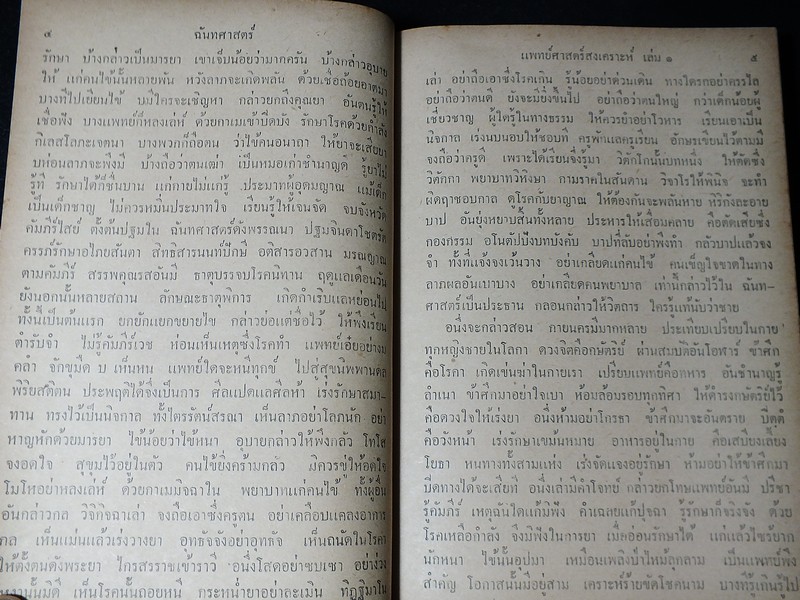 ๔ ฉันทศาสตร์
รักษา บ้างกล่าวเป็นมารยา เขาเจ็บน้อยว่ามากครัน บ้างกล่าวอุบาย
ให้ แก่คนไข้นั้นหลายพัน หวังลาภจะเกิดพลัน ด้วยเชื่อถ้อยอาตมา
บางทีไปเยียนไข้ บมีใครจะเชิญหา กล่าวยกถึงคุณยา อันตนรู้ให้
เชื่อฟัง บางแพทย์ก็หลงเล่ห์ ด้วยกาเมเข้าปิดบัง รักษาโรคด้วยกำลัง
กิเลสโลภะเจตนา บางพวกก็ถือตน ว่าไข้คนอนาถา ให้ยาจะเสียยา
บห่อนลาภจะพึงมี บ้างถือว่าตนเฒ่า เป็นหมอเก่าชำนาญดี รู้ยาไม่
รู้ที รักษาได้ก็ชื่นบาน แก่กายไม่แก่รู้ ประมาทผู้อุดมญาณ แม้เด็ก
เป็นเด็กชาญ ไม่ควรหมิ่นประมาทใจ เรียนรู้ให้เจนจัด จบจังหวัด
คัมภีร์ไสย์ ตั้งต้นปฐมใน ฉันทศาสตร์ดังพรรณนา ปฐมจินดาโชตรัต
ครรภ์รักษาอไภยสันตา สิทธิสารนนท์ปักษี อติสารอวสาน มรณญาณ
ตามคัมภีร์ สรรพคุณรสอันมี ธาตุบรรจบโรคนิทาน ฤดูแลเดือนวัน
ยังนอกนั้นหลายสถาน ลักษณะธาตุพิการ เกิดกำเริบแลหย่อนไป
ทั้งนี้เป็นต้นแรก ยกยักแยกขยายไข กล่าวย่อแต่ชื่อไว้ ให้พึงเรียน
ตำรับจำ ไม่รู้คัมภีร์เวช ห่อนเห็นเหตุซึ่งโรคทำ แพทย์เอ๋ยอย่างม
คลำ จักขุมืด บ เห็นหน แพทย์ใดจะหนีทุกข์ ไปสู่สุขนิพพานดล
พิริยสติตน ประพฤติได้จึ่งเป็นการ ศีลแปดแลศีลห้า เร่งรักษาสมา-
ทาน ทรงไว้เป็นนิจกาล ทั้งไตรรัตน์สรณา เห็นลาภอย่าโลภนัก อย่า
หาญหักด้วยมารยา ไข้น้อยว่าไข้หนา อุบายกล่าวให้พึงกลัว โทโส
จงอดใจ สุขุมไว้อยู่ในตัว คนไข้ยิ่งคร้ามกลัว มิควรขู่ให้อดใจ
โมโหอย่าหลงเล่ห์ ด้วยกาเมมิจฉาใน พยาบาทแก่คนไข้ ทั้งผู้อื่น
อันกล่าวกล วิจิกิจฉาเล่า จงถือเอาซึ่งครูตน อย่าเคลือบแคลงอาการ
กล เห็นแม่นแล้วเร่งวางยา อุทธัจจังอย่าอุทธัจ เห็นถนัดในโรคา
ให้ตั้งตนดังพระยา ไกรสรราชเข้าราวี อนึ่งโสดอย่าซบเซา อย่าง่วง
เหงานั้นมิดี เห็นโรคนั้นถอยหนี กระหน่ำยาอย่าละเมิน ทิฏฐิมาโน
แพทย์ศาสตร์สงเคราะห์ เล่ม ๑ ๕
เล่า อย่าถือเอาซึ่งโรคเกิน รู้น้อยอย่าด่วนเดิน ทางใครกอย่าครรไล
อย่าถือว่าตนดี ยังจะมียิ่งขึ้นไป อย่าถือว่าตนใหญ่ กว่าเด็กน้อยผู้
เชี่ยวชาญ ผู้ใดรู้ในทางธรรม ให้ควรยำอย่าโวหาร เรียนเอาเป็น
นิจกาล เร่งนบนอบให้ชอบที ครูพักแลครูเรียน อักษรเขียนไว้ตามมี
จงถือว่าครูดี เพราะได้เรียนจึ่งรู้มา วิตักโกนั้นบทหนึ่ง ให้ตัดซึ่ง
วิตักกา พยาบาทวิหิงษา กามราคในสันดาน วิจาโรให้พินิจ จะทำ
ผิดฤๅชอบกาล ดูโรคกับยาญาณ ให้ต้องกันจะพลันหาย หิริกังละอาย
บาป อันยุ่งหยาบสิ้นทั้งหลาย ประหารให้เสื่อมคลาย คือตัดเสียซึ่ง
กองกรรม อโนตัปปังบทบังคับ บาปที่ลับอย่าพึงทำ กลัวบาปแล้วจง
จำ ทั้งที่แจ้งจงเว้นวาง อย่าเกียจแก่คนไข้ คนเข็ญใจขาดในทาง
ลาภผลอันเบาบาง อย่าเกียจคนพยาบาล เท่านี้กล่าวไว้ใน ฉันท-
ศาสตร์เป็นประธาน กลอนกล่าวให้วิตถาร ใครรู้แท้นับว่าชาย
อนึ่งจะกล่าวสอน กายนครมีมากหลาย ประเทียบเปรียบในกาย
ทุกหญิงชายในโลกา ดวงจิตคือกษัตริย์ ผ่านสมบัติอันโอฬาร์ ข้าศึก
คือโรคา เกิดเข่นฆ่าในกายเรา เปรียบแพทย์คือทหาร อันชำนาญรู้
ลำเนา ข้าศึกมาอย่าใจเบา ห้อมล้อมรอบทุกทิศา ให้ดำรงกษัตริย์ไว้
คือดวงใจให้เร่งยา อนึ่งห้ามอย่าโกรธา ข้าศึกมาจะอันตราย ปิตตํ
คือวังหน้า เร่งรักษาเขม้นหมาย อาหารอยู่ในกาย คือเสบียงเลี้ยง
โยธา หนทางทั้งสามแห่ง เร่งจัดแจงอยู่รักษา ห้ามอย่าให้ข้าศึกมา
ปิดทางได้จะเสียที อนึ่งเล่ามีคำโจทย์ กล่าวยกโทษแพทย์อันมี ปรีชา
รู้คัมภีร์ เหตุฉันใดแก้มิฟัง คำเฉลยแก้ปุจฉา รู้รักษาก็จริงจัง ด้วย
โรคเหลือกำลัง จึ่งมิฟังในการยา เมื่ออ่อนรักษาได้ แก่แล้วไซร้ยาก
นักหนา ไข้นั้นอุปมา เหมือนเพลิงป่าไหม้ลุกลาม เป็นแพทย์พึง
สำคัญ โอกาสนั้นมีอยู่สาม เคราะห์ร้ายขัดโชคนาม บางทีรู้เกินรู้ไป